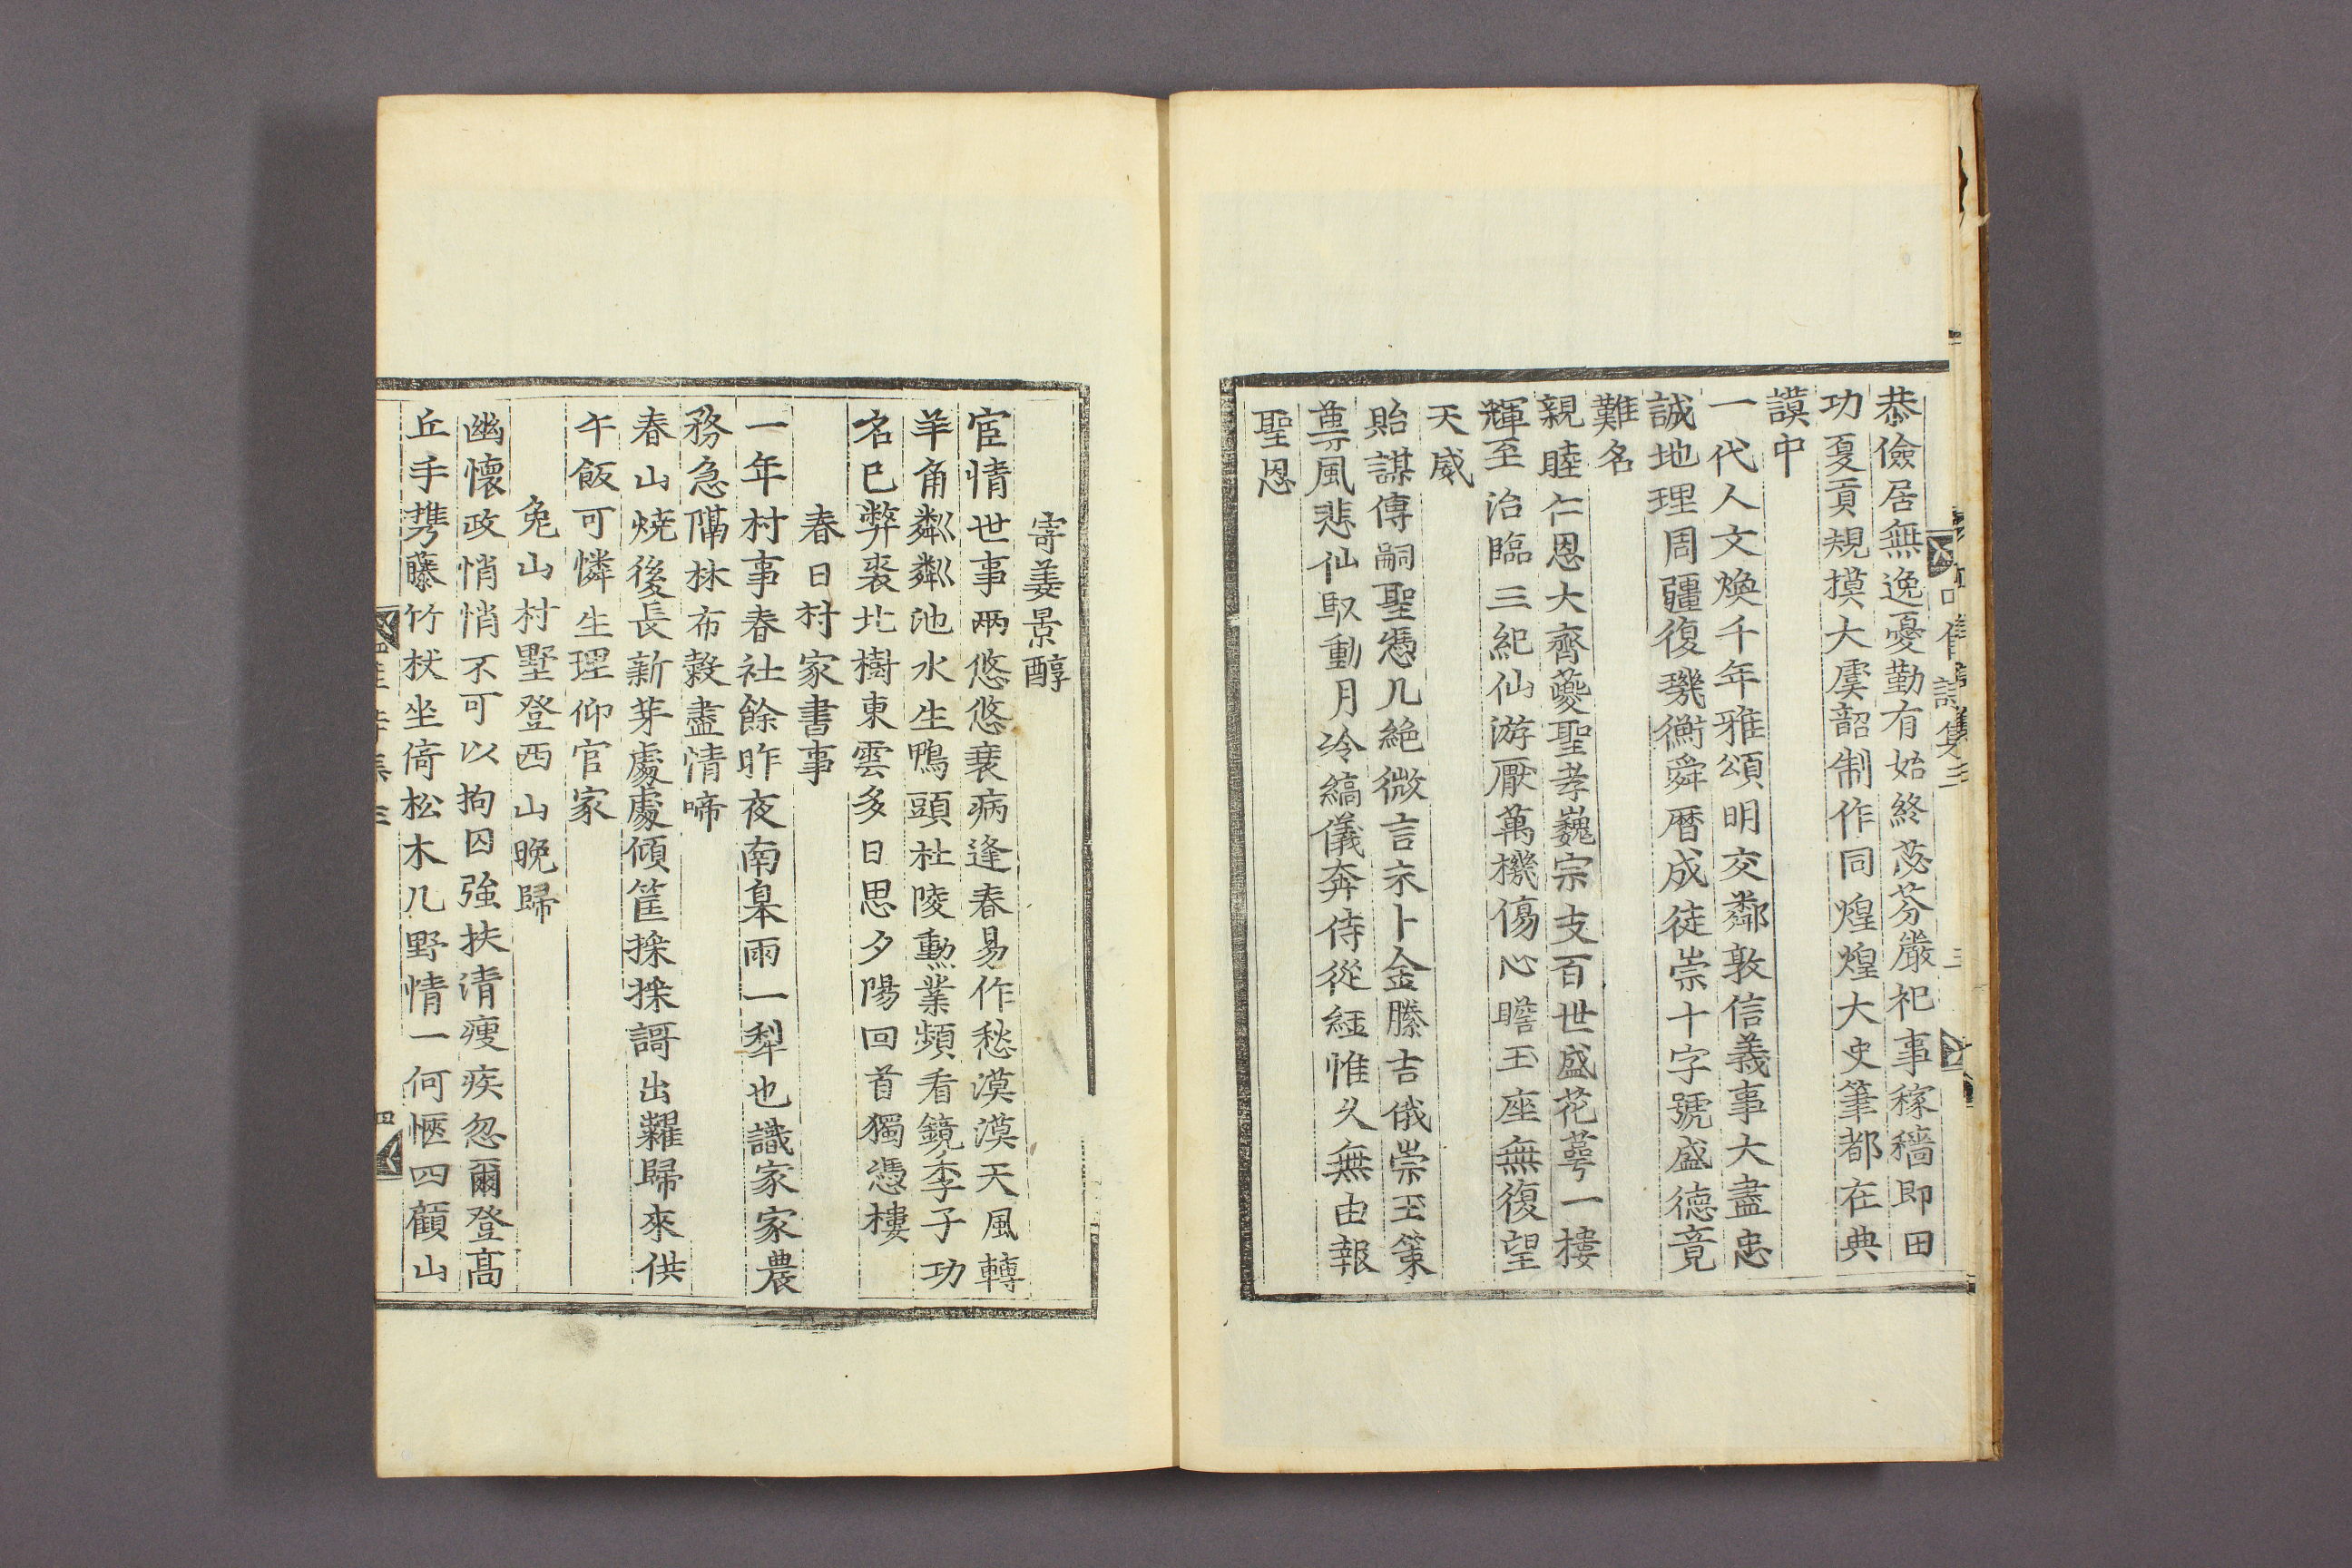 恭儉居無逸憂勤有始終苾芬嚴祀事稼穡即田
功夏貢規摸大虞韶制作同煌煌大史筆都在典
謨中
一代人文煥千年雅頌明交鄰敦信義事大盡忠
誠地理周疆復璣衡舜曆成徒崇十字號盛德竟
難名
親睦仁恩大齊夔聖孝巍宗支百世盛花萼一樓
輝至治臨三紀仙游厭萬機傷心瞻玉座無復望
天威
貽謀傳嗣聖憑几絶微言未卜金縢吉俄崇玉策
尊風悲仙馭動月冷縞儀奔侍從經惟久無由報
聖恩
寄姜景醇
宦情世事兩悠悠衰病逢春易作愁漠漠天風轉
羊角粼粼池水生鴨頭杜陵勳業頻看鏡季子功
名已弊裘北樹東雲多日思夕陽回首獨憑樓
春日村家書事
一年村事春社餘昨夜南臯雨一犁也識家家農
務急隔林布穀盡情啼
春山燒後長新芽處處傾筐採採謌出糶歸來供
午飯可憐生理仰官家
兔山村墅登西山晚歸
幽懷政悄悄不可以拘囚強扶清瘦疾忽爾登高
丘手携藤竹杖坐倚松木几野情一何愜四顧山
四